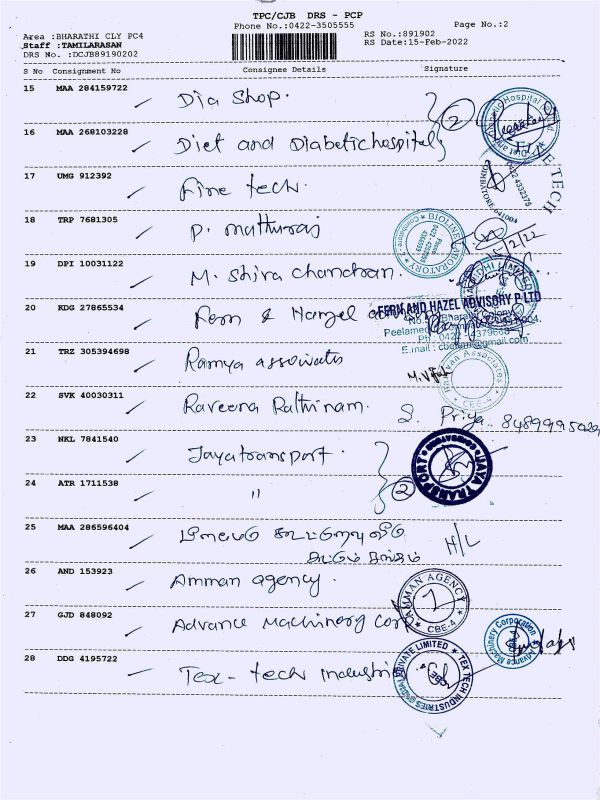 TPC/CJB DRS - PCP
Phone No.:0422-3505555
Page No.:2
Area :BHARATHI CLY PC4
RS No.:891902
Staff :TAMILARASAN
RS Date:15-Feb-2022
DRS No. :DCJB89190202
S No Consignment No Consignee Details Signature
15 MAA 284159722 Dia Shop.
16 MAA 268103228 Diet and Diabetic hospital 2
17 UMG 912392 Fine tech.
18 TRP 7681305 P. mathuraj
BIOLINE LABORATORY
19 DPI 10031122 M. Shiva Chandran.
20 KDG 27865534 Fern & Hazel
FERN AND HAZEL ADVISORY P LTD
21 TRZ 305394698 Ramya associates
22 SVK 40030311 Raveena Rathinam. S. Priya.
23 NKL 7841540 Jayatransport.
JAYA TRANSPORT
24 ATR 1711538 " 2
25 MAA 286596404 H/L
26 AND 153923 Amman agency.
AMMAN AGENCY
CBE-4
27 GJD 848092 Advance Machinery Corp
Advance Machinery Corporation
28 DDG 4195722 Tex-tech industries
TEX TECH INDUSTRIES PRIVATE LIMITED